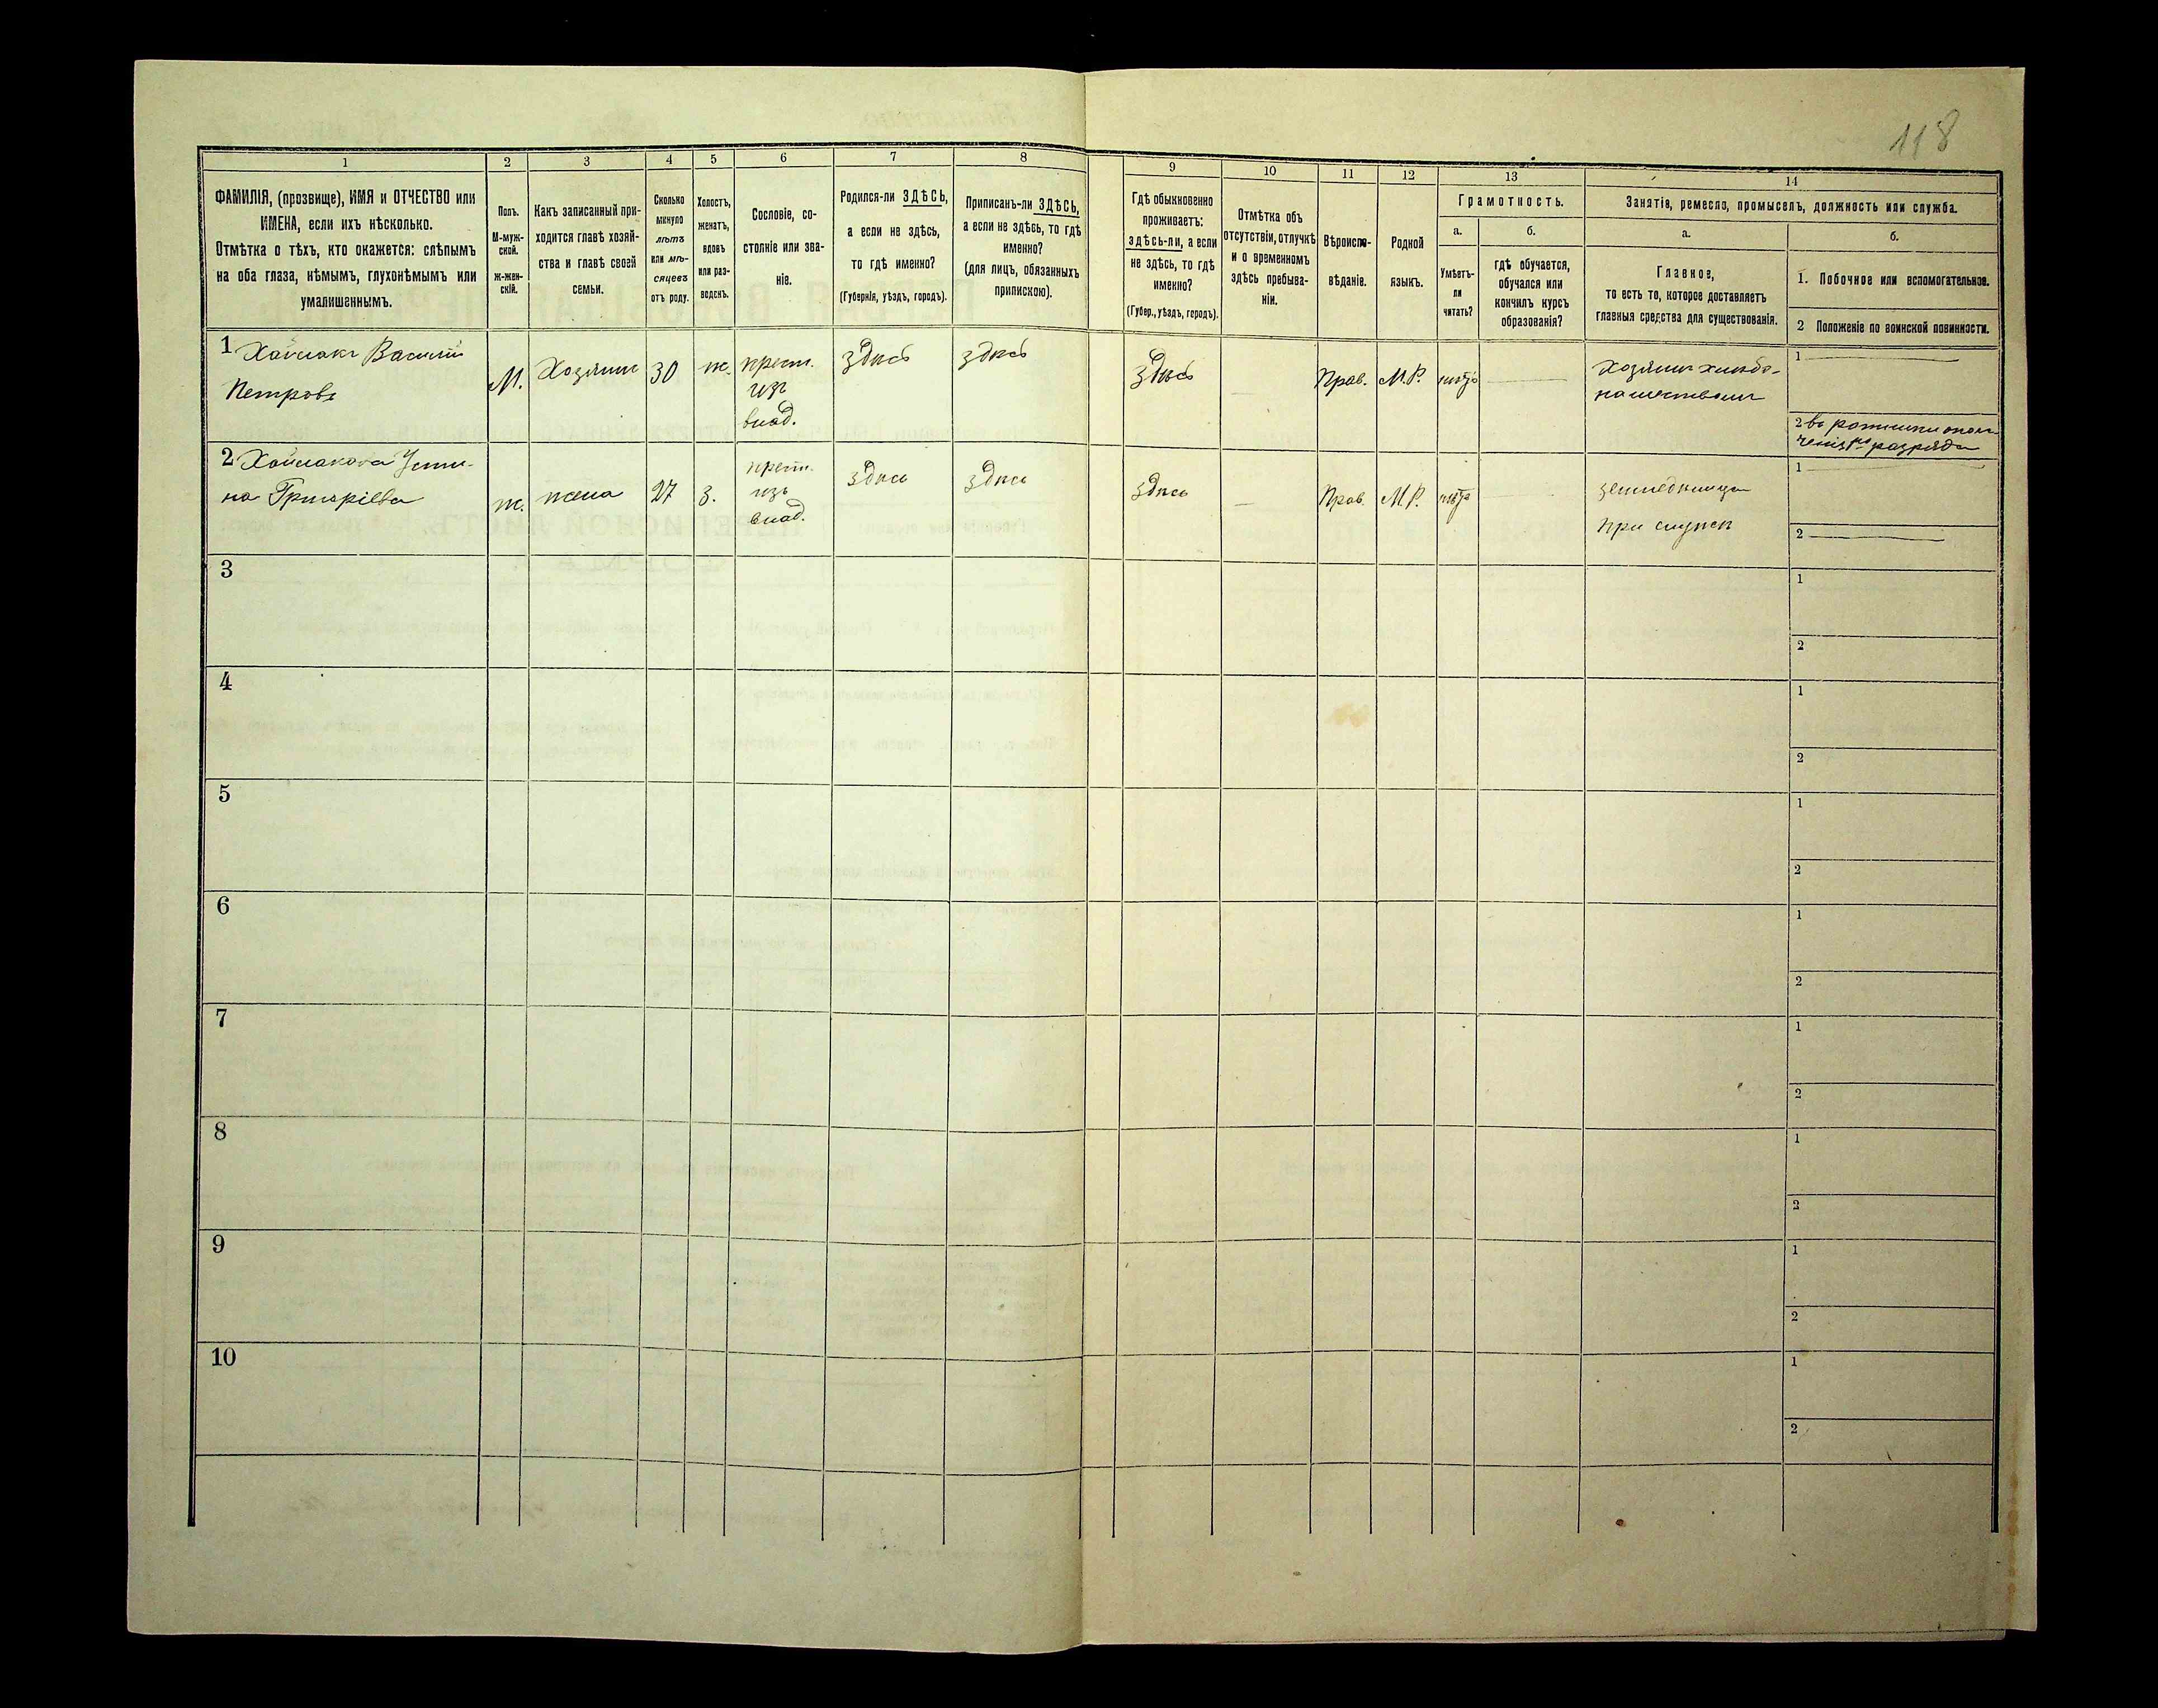 118
1
2
3
4
5
6
7
8
9
10
11
12
13
14
ФАМИЛІЯ, (прозвище), ИМЯ и ОТЧЕСТВО или
ИМЕНА, если ихъ нѣсколько.
Отмѣтка о тѣхъ, кто окажется: слѣпымъ
на оба глаза, нѣмымъ, глухонѣмымъ или
умалишеннымъ.
Полъ.
М-муж-
ской.
ж-жен-
скій.
Какъ записанный при-
ходится главѣ хозяй-
ства и главѣ своей
семьи.
Сколько
минуло
лѣтъ
или мѣ-
сяцевъ
отъ роду.
Холостъ,
женатъ,
вдовъ
или раз-
веденъ.
Сословіе, со-
стояніе или зва-
ніе.
Родился-ли ЗДѢСЬ,
а если не здѣсь,
то гдѣ именно?
(Губернія, уѣздъ, городъ).
Приписанъ-ли ЗДѢСЬ,
а если не здѣсь, то гдѣ
именно?
(для лицъ, обязанныхъ
припискою).
Гдѣ обыкновенно
проживаетъ:
здѣсь-ли, а если
не здѣсь, то гдѣ
именно?
(Губер., уѣздъ, городъ).
Отмѣтка объ
отсутствіи, отлучкѣ
и о временномъ
здѣсь пребыва-
ніи.
Вѣроиспо-
вѣданіе.
Родной
языкъ.
Грамотность.
а.
Умѣетъ-
ли
читать?
б.
гдѣ обучается,
обучался или
кончилъ курсъ
образованія?
Занятіе, ремесло, промыселъ, должность или служба.
а.
Главное,
то есть то, которое доставляетъ
главныя средства для существованія.
б.
1. Побочное или вспомогательное.
2 Положеніе по воинской повинности.
1 Василій
Петровъ
М.
Хозяинъ
30
ж.
крест.
изъ
влад.
здѣсь
здѣсь
здѣсь
Прав.
М.Р.
нѣтъ
Хозяинъ хлѣбо-
пашествомъ
1
2
разряда
2 Усти-
на Григоріева
ж.
жена
27
З.
крест.
изъ
влад.
здѣсь
здѣсь
здѣсь
Прав.
М.Р.
нѣтъ
при
1
2
3
1
2
4
1
2
5
1
2
6
1
2
7
1
2
8
1
2
9
1
2
10
1
2